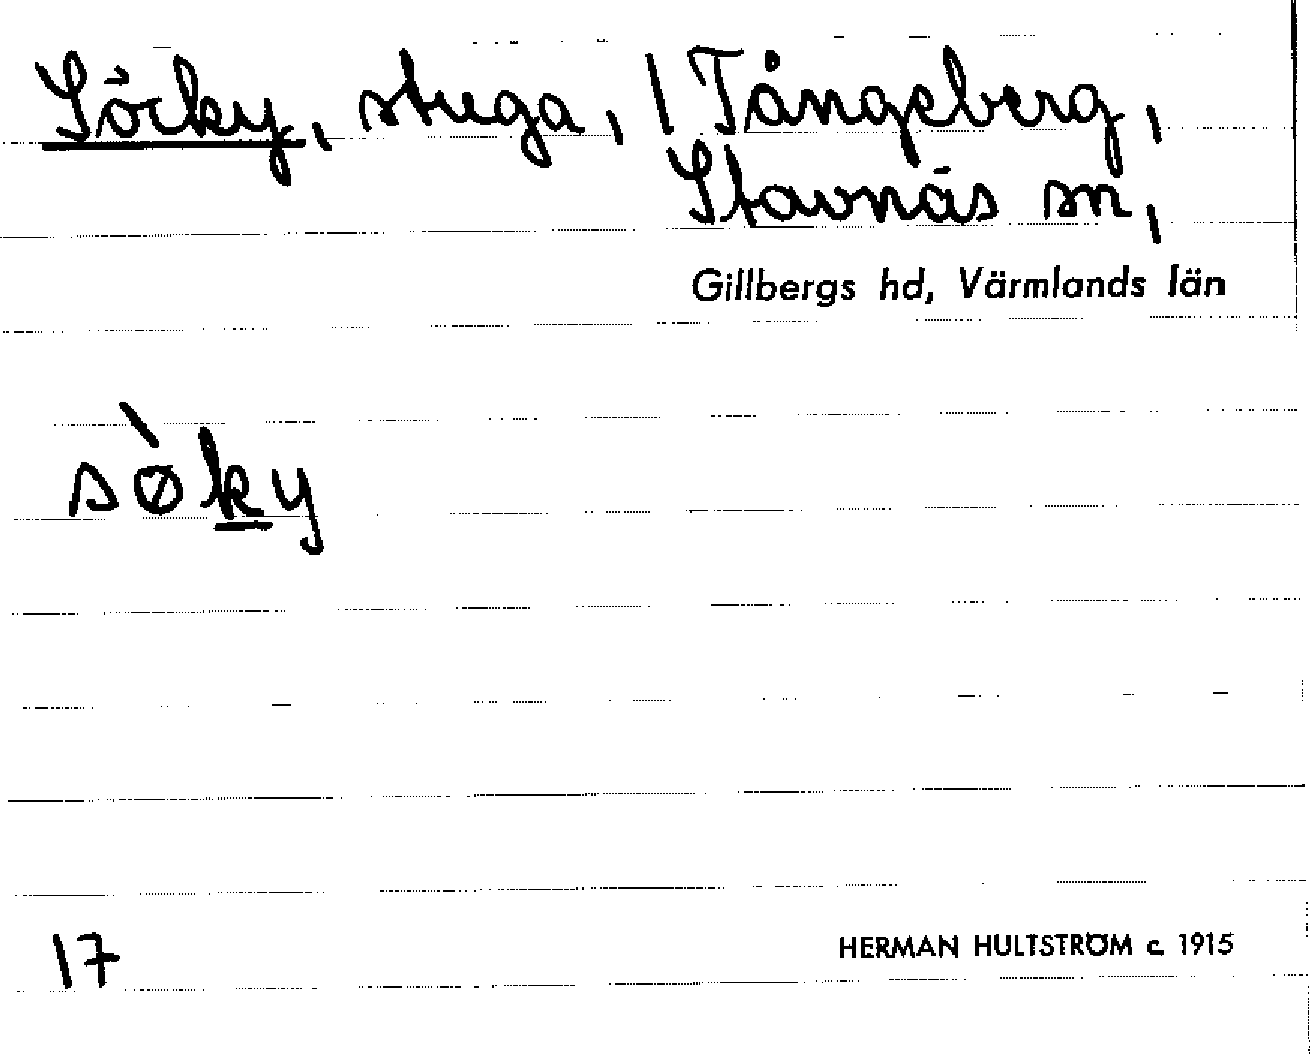 Söcky, stuga, / Tångeberg,
Stavnäs sn,
Gillbergs hd, Värmlands län
sø̀ky
17
HERMAN HULTSTRÖM c. 1915